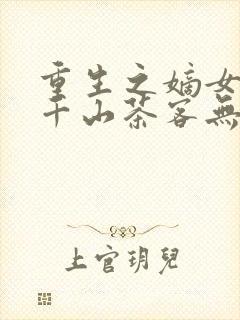 重生之嫡女
千山茶客無
上官玥兒